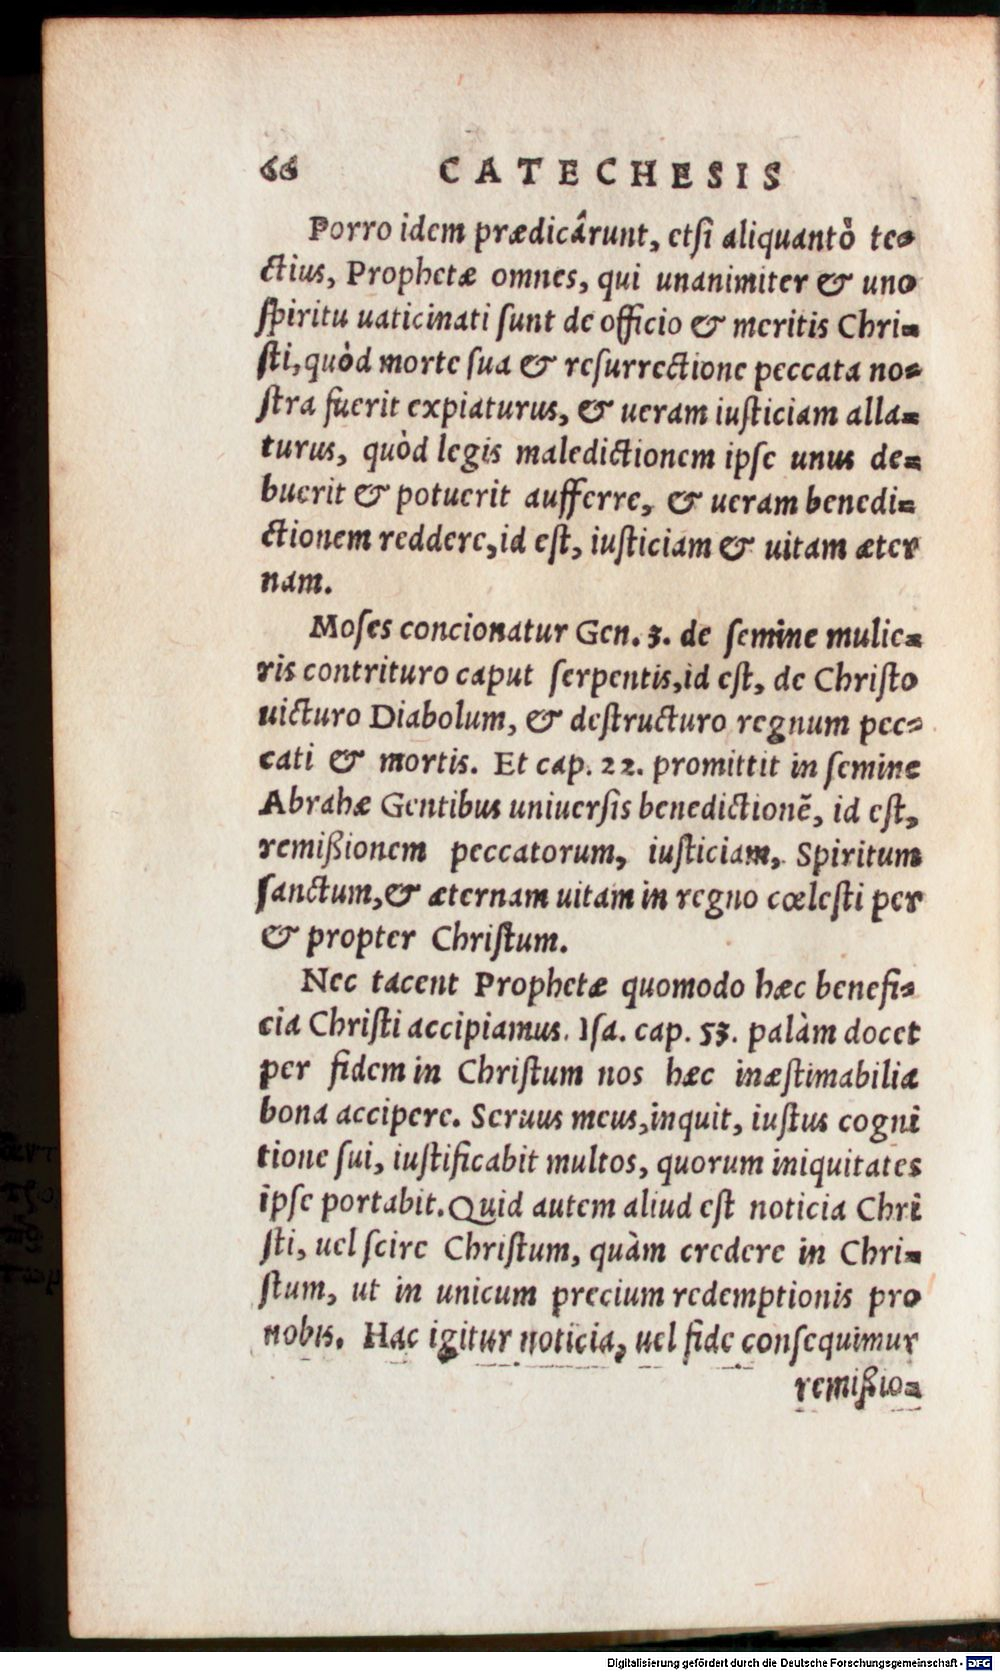 66 CATECHESIS
Porro idem prædicârunt, etſi aliquantò te-
ctius, Prophetæ omnes, qui unanimiter & uno
ſpiritu uaticinati ſunt de officio & meritis Chri-
ſti, quòd morte ſua & reſurrectione peccata no-
ſtra fuerit expiaturus, & ueram iuſticiam alla-
turus, quòd legis maledictionem ipſe unus de-
buerit & potuerit aufferre, & ueram benedi-
ctionem reddere, id eſt, iuſticiam & uitam æter
nam.
Moſes concionatur Gen. 3. de ſemine mulie-
ris contrituro caput ſerpentis, id eſt, de Chriſto
uicturo Diabolum, & deſtructuro regnum pec-
cati & mortis. Et cap. 22. promittit in ſemine
Abrahæ Gentibus uniuerſis benedictionē, id eſt,
remißionem peccatorum, iuſticiam, Spiritum
ſanctum, & æternam uitam in regno cœleſti per
& propter Chriſtum.
Nec tacent Prophetæ quomodo hæc benefi-
cia Chriſti accipiamus. Iſa. cap. 53. palàm docet
per fidem in Chriſtum nos hæc inæſtimabilia
bona accipere. Seruus meus, inquit, iuſtus cogni
tione ſui, iuſtificabit multos, quorum iniquitates
ipſe portabit. Quid autem aliud eſt noticia Chri
ſti, uel ſcire Chriſtum, quàm credere in Chri-
ſtum, ut in unicum precium redemptionis pro
nobis. Hac igitur noticia, uel fide conſequimur
remißio-
Digitalisierung gefördert durch die Deutsche Forschungsgemeinschaft - DFG